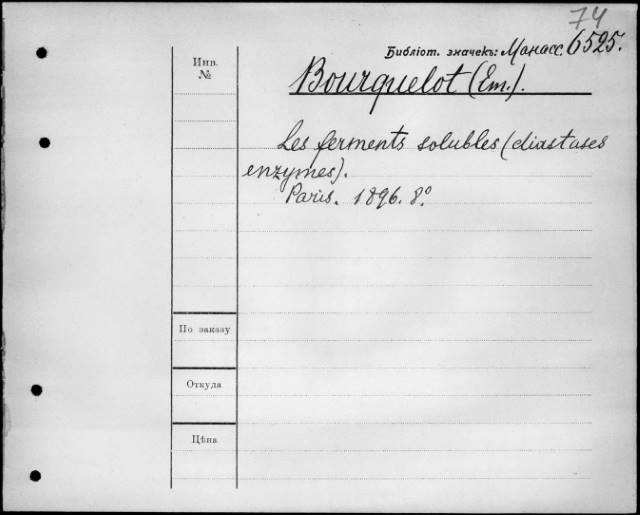 74
Библіот. значекъ: Манасс. 6525.
Инв.
№
Bourquelot (Em.).
Les ferments solubles (diastases
enzymes).
Paris. 1896. 8°.
По заказу
Откуда
Цѣна